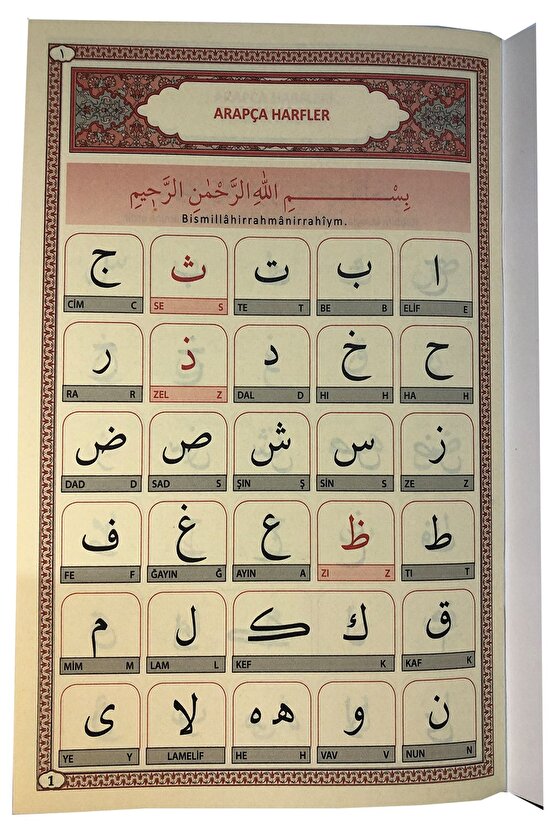 ١
ARAPÇA HARFLER
بِسْــــــــمِ اللهِ الرَّحْمٰنِ الرَّحِيمِ
Bismillâhirrahmânirrahîym.
ا ب ت ث ج
CİM C SE S TE T BE B ELİF E
ح خ د ذ ر
RA R ZEL Z DAL D HI H HA H
ز س ش ص ض
DAD D SAD S ŞIN Ş SİN S ZE Z
ط ظ ع غ ف
FE F ĞAYIN Ğ AYIN A ZI Z TI T
ق ك ڪ ل م
MİM M LAM L KEF K KAF K
ن و ه ه لا ى
YE Y LAMELİF HE H VAV V NUN N
1